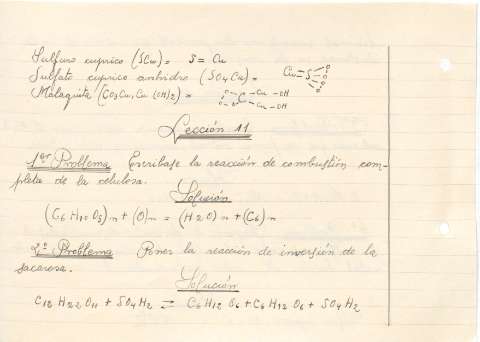 Sulfuro cuprico (SCu) = S = Cu
Sulfato cuprico anhidro (SO4Cu) =
Malaquita (CO3Cu, Cu (OH)2) =
Lección 11
1er Problema Escribase la reacción de combustión com-
pleta de la celulosa.
Solución
(C6 H10 O5)n + (O)n = (H2O)n + (C6)n
2º Problema Poner la reacción de inversión de la
sacarosa.
Solución
C12 H22 O11 + SO4H2 ⇄ C6H12 O6 + C6 H12 O6 + SO4H2